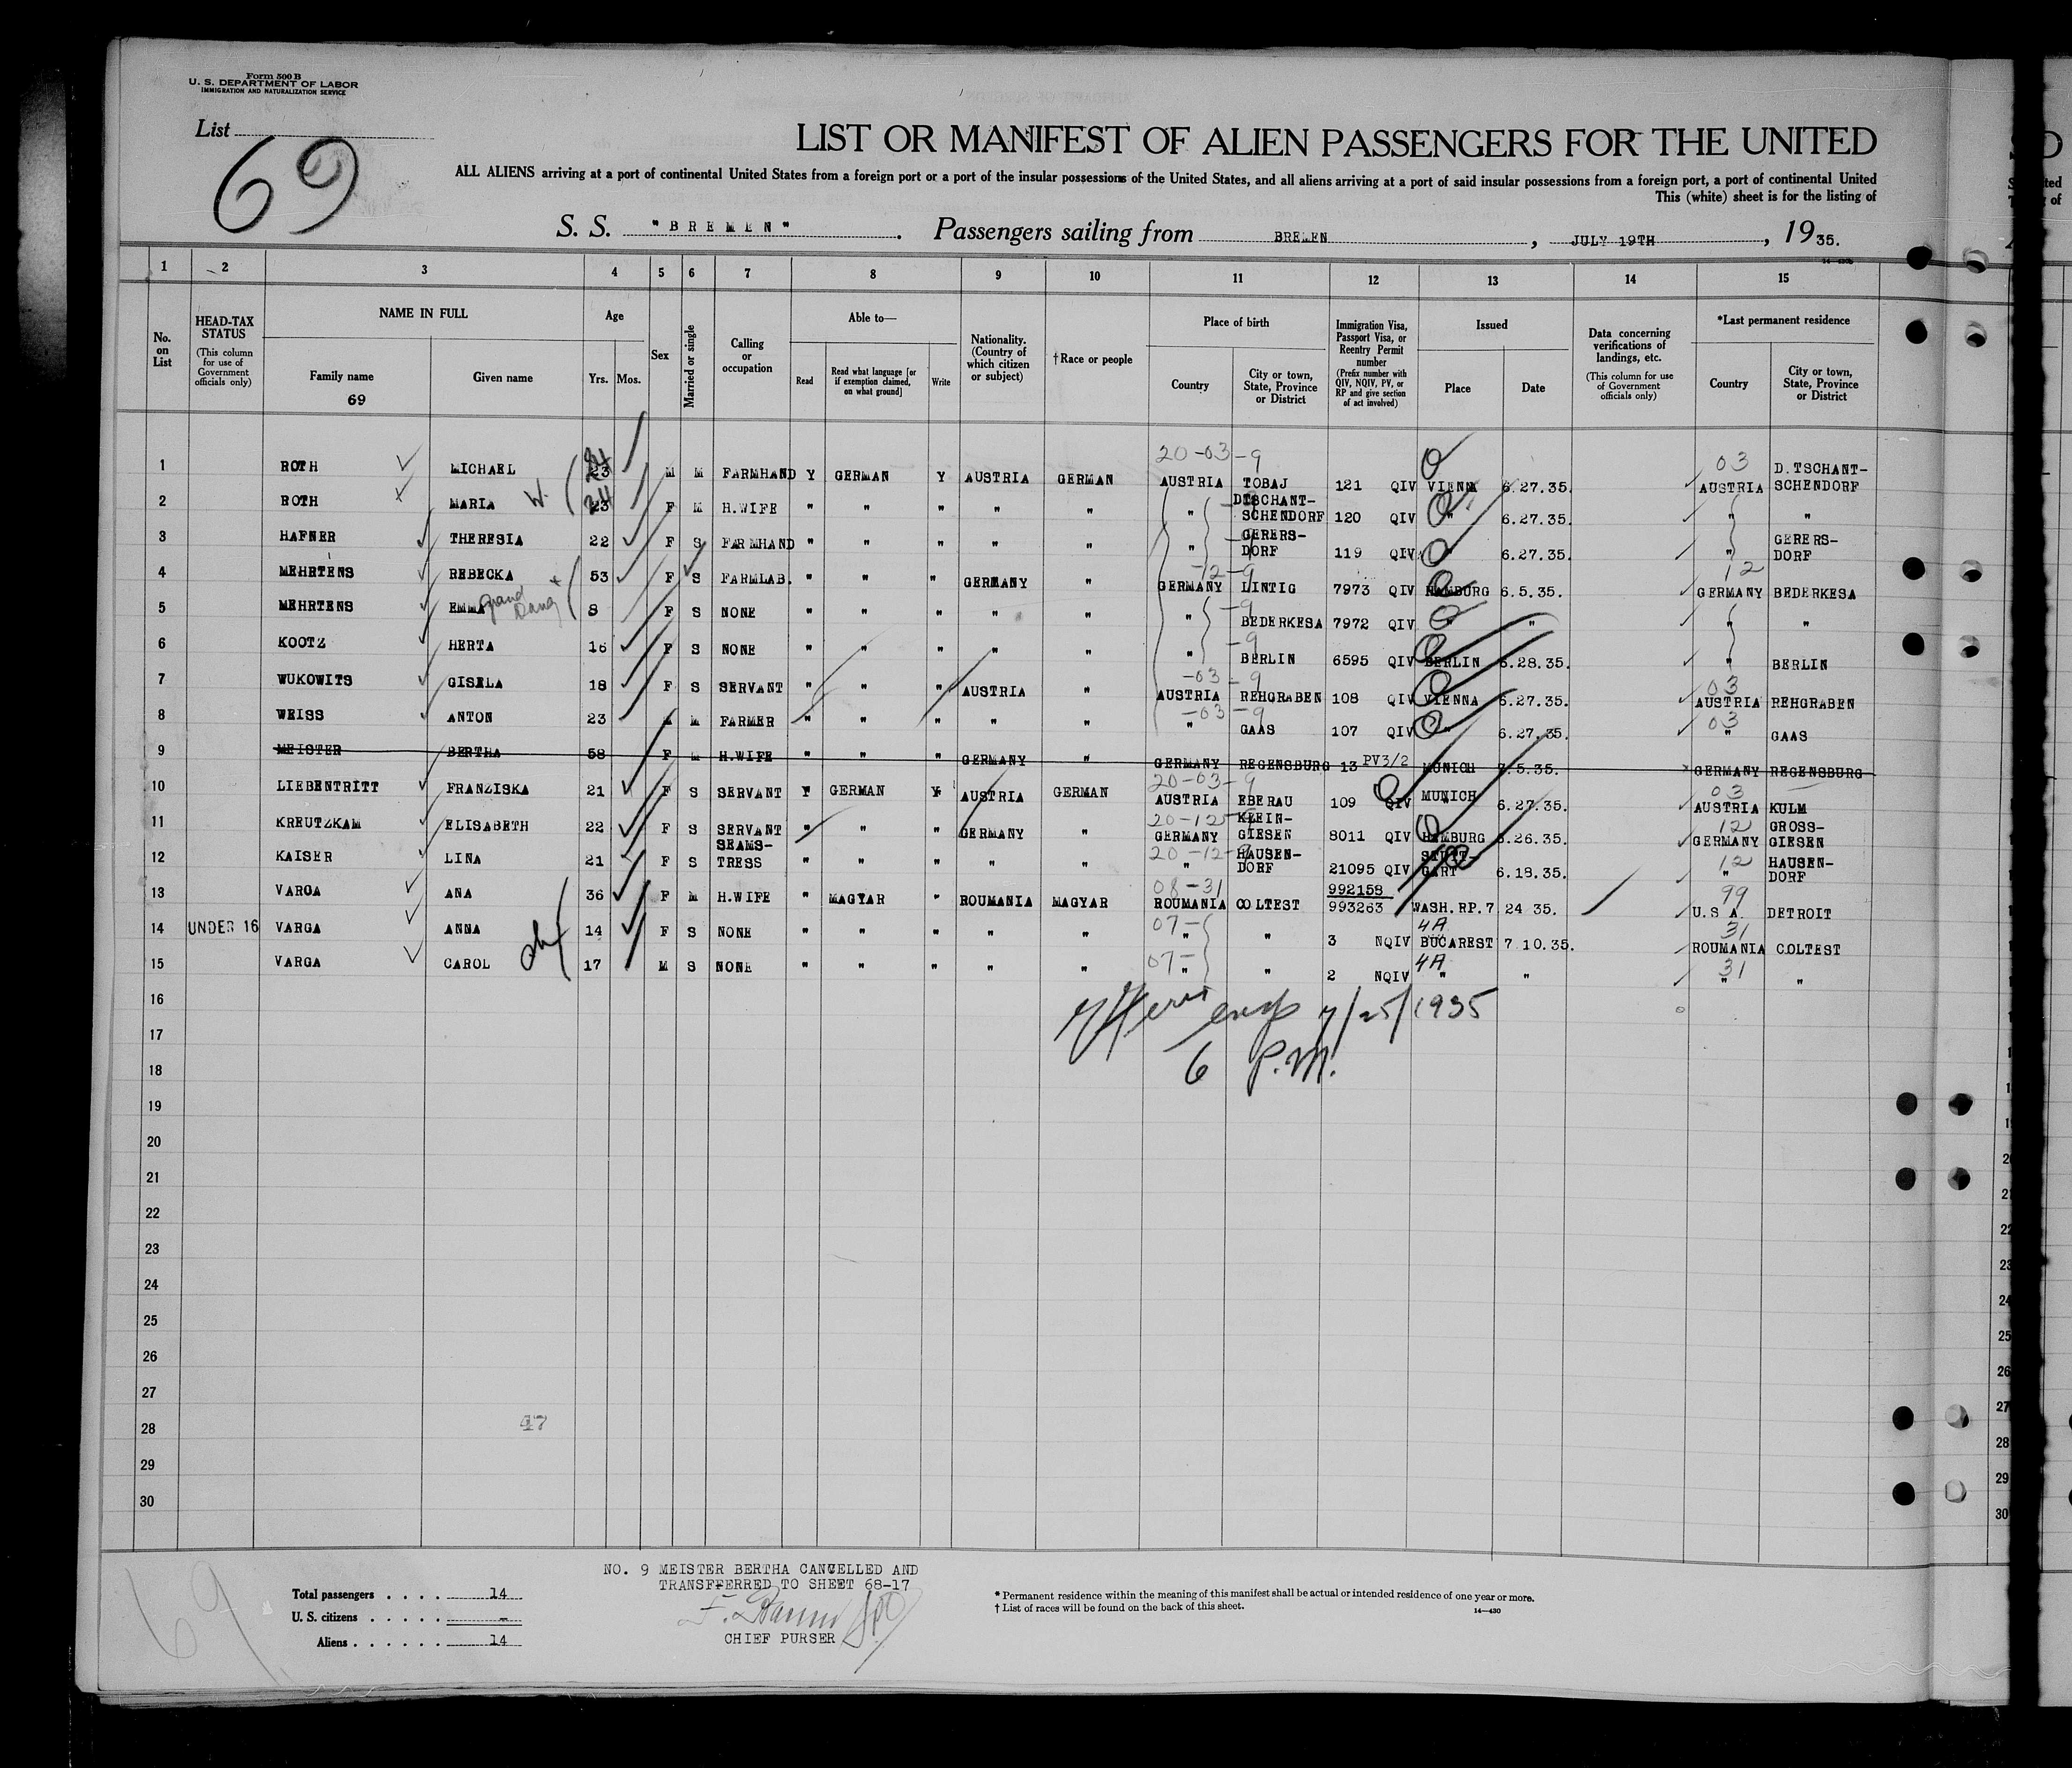 Form 500 B
U. S. DEPARTMENT OF LABOR
IMMIGRATION AND NATURALIZATION SERVICE
List
69
LIST OR MANIFEST OF ALIEN PASSENGERS FOR THE UNITED
ALL ALIENS arriving at a port of continental United States from a foreign port or a port of the insular possessions of the United States, and all aliens arriving at a port of said insular possessions from a foreign port, a port of continental United
This (white) sheet is for the listing of
S. S. "BREMEN". Passengers sailing from BREMEN, JULY 19TH, 1935.
1 2 3 4 5 6 7 8 9 10 11 12 13 14 15
No. on List
HEAD-TAX STATUS (This column for use of Government officials only)
NAME IN FULL
Family name 69
Given name
Age Yrs. Mos.
Sex
Married or single
Calling or occupation
Able to—
Read
Read what language [or if exemption claimed, on what ground]
Write
Nationality. (Country of which citizen or subject)
†Race or people
Place of birth
Country
City or town, State, Province or District
Immigration Visa, Passport Visa, or Reentry Permit number (Prefix number with QIV, NQIV, PV, or RP and give section of act involved)
Issued
Place
Date
Data concerning verifications of landings, etc. (This column for use of Government officials only)
*Last permanent residence
Country
City or town, State, Province or District
20-03-9 03
1 ROTH MICHAEL 23 24 M M FARMHAND Y GERMAN Y AUSTRIA GERMAN AUSTRIA TOBAJ 121 QIV VIENNA 6.27.35. AUSTRIA D.TSCHANT-SCHENDORF
2 ROTH MARIA W. 23 24 F M H.WIFE " " " " " " D.TSCHANT-SCHENDORF 120 QIV " 6.27.35. " "
3 HAFNER THERESIA 22 F S FARMHAND " " " " " " GERERS-DORF 119 QIV " 6.27.35. " GERERS-DORF
-12-9 12
4 MEHRTENS REBECKA 53 F S FARMLAB. " " " GERMANY " GERMANY LINTIG 7973 QIV HAMBURG 6.5.35. GERMANY BEDERKESA
5 MEHRTENS EMMA Grand Daug 8 F S NONE " " " " " " BEDERKESA 7972 QIV " " " "
6 KOOTZ HERTA 16 F S NONE " " " " " " BERLIN 6595 QIV BERLIN 6.28.35. " BERLIN
-03-9 03
7 WUKOWITS GISELA 18 F S SERVANT " " " AUSTRIA " AUSTRIA REHGRABEN 108 QIV VIENNA 6.27.35. AUSTRIA REHGRABEN
-03-9 03
8 WEISS ANTON 23 M M FARMER " " " " " " GAAS 107 QIV " 6.27.35. " GAAS
9 MEISTER BERTHA 58 F M H.WIFE " " " GERMANY " GERMANY REGENSBURG 13 PV3/2 MUNICH 7.5.35. GERMANY REGENSBURG
20-03-9 03
10 LIEBENTRITT FRANZISKA 21 F S SERVANT Y GERMAN Y AUSTRIA GERMAN AUSTRIA EBERAU 109 QIV MUNICH 6.27.35. AUSTRIA KULM
20-12- 12
11 KREUTZKAM ELISABETH 22 F S SERVANT " " " GERMANY " GERMANY KLEIN-GIESEN 8011 QIV HAMBURG 6.26.35. GERMANY GROSS-GIESEN
20-12-9 12
12 KAISER LINA 21 F S SEAMS-TRESS " " " " " " HAUSEN-DORF 21095 QIV STUTT-GART 6.18.35. " HAUSEN-DORF
08-31 992158 99
13 VARGA ANA 36 F M H.WIFE " MAGYAR " ROUMANIA MAGYAR ROUMANIA COLTEST 993263 WASH.RP.7 24 35. U.S A. DETROIT
07- 4A 31
14 UNDER 16 VARGA ANNA 14 F S NONE " " " " " " " 3 NQIV BUCAREST 7 10.35. ROUMANIA COLTEST
07- 4A 31
15 VARGA CAROL ch 17 M S NONE " " " " " " " 2 NQIV " " " "
16
7/25/1935
17
6 P.M.
18
19
20
21
22
23
24
25
26
27
28
29
30
47
69
Total passengers . . . . 14
U. S. citizens . . . . . –
Aliens . . . . . . 14
NO. 9 MEISTER BERTHA CANCELLED AND
TRANSFFERRED TO SHEET 68-17
CHIEF PURSER
* Permanent residence within the meaning of this manifest shall be actual or intended residence of one year or more.
† List of races will be found on the back of this sheet.
14—430